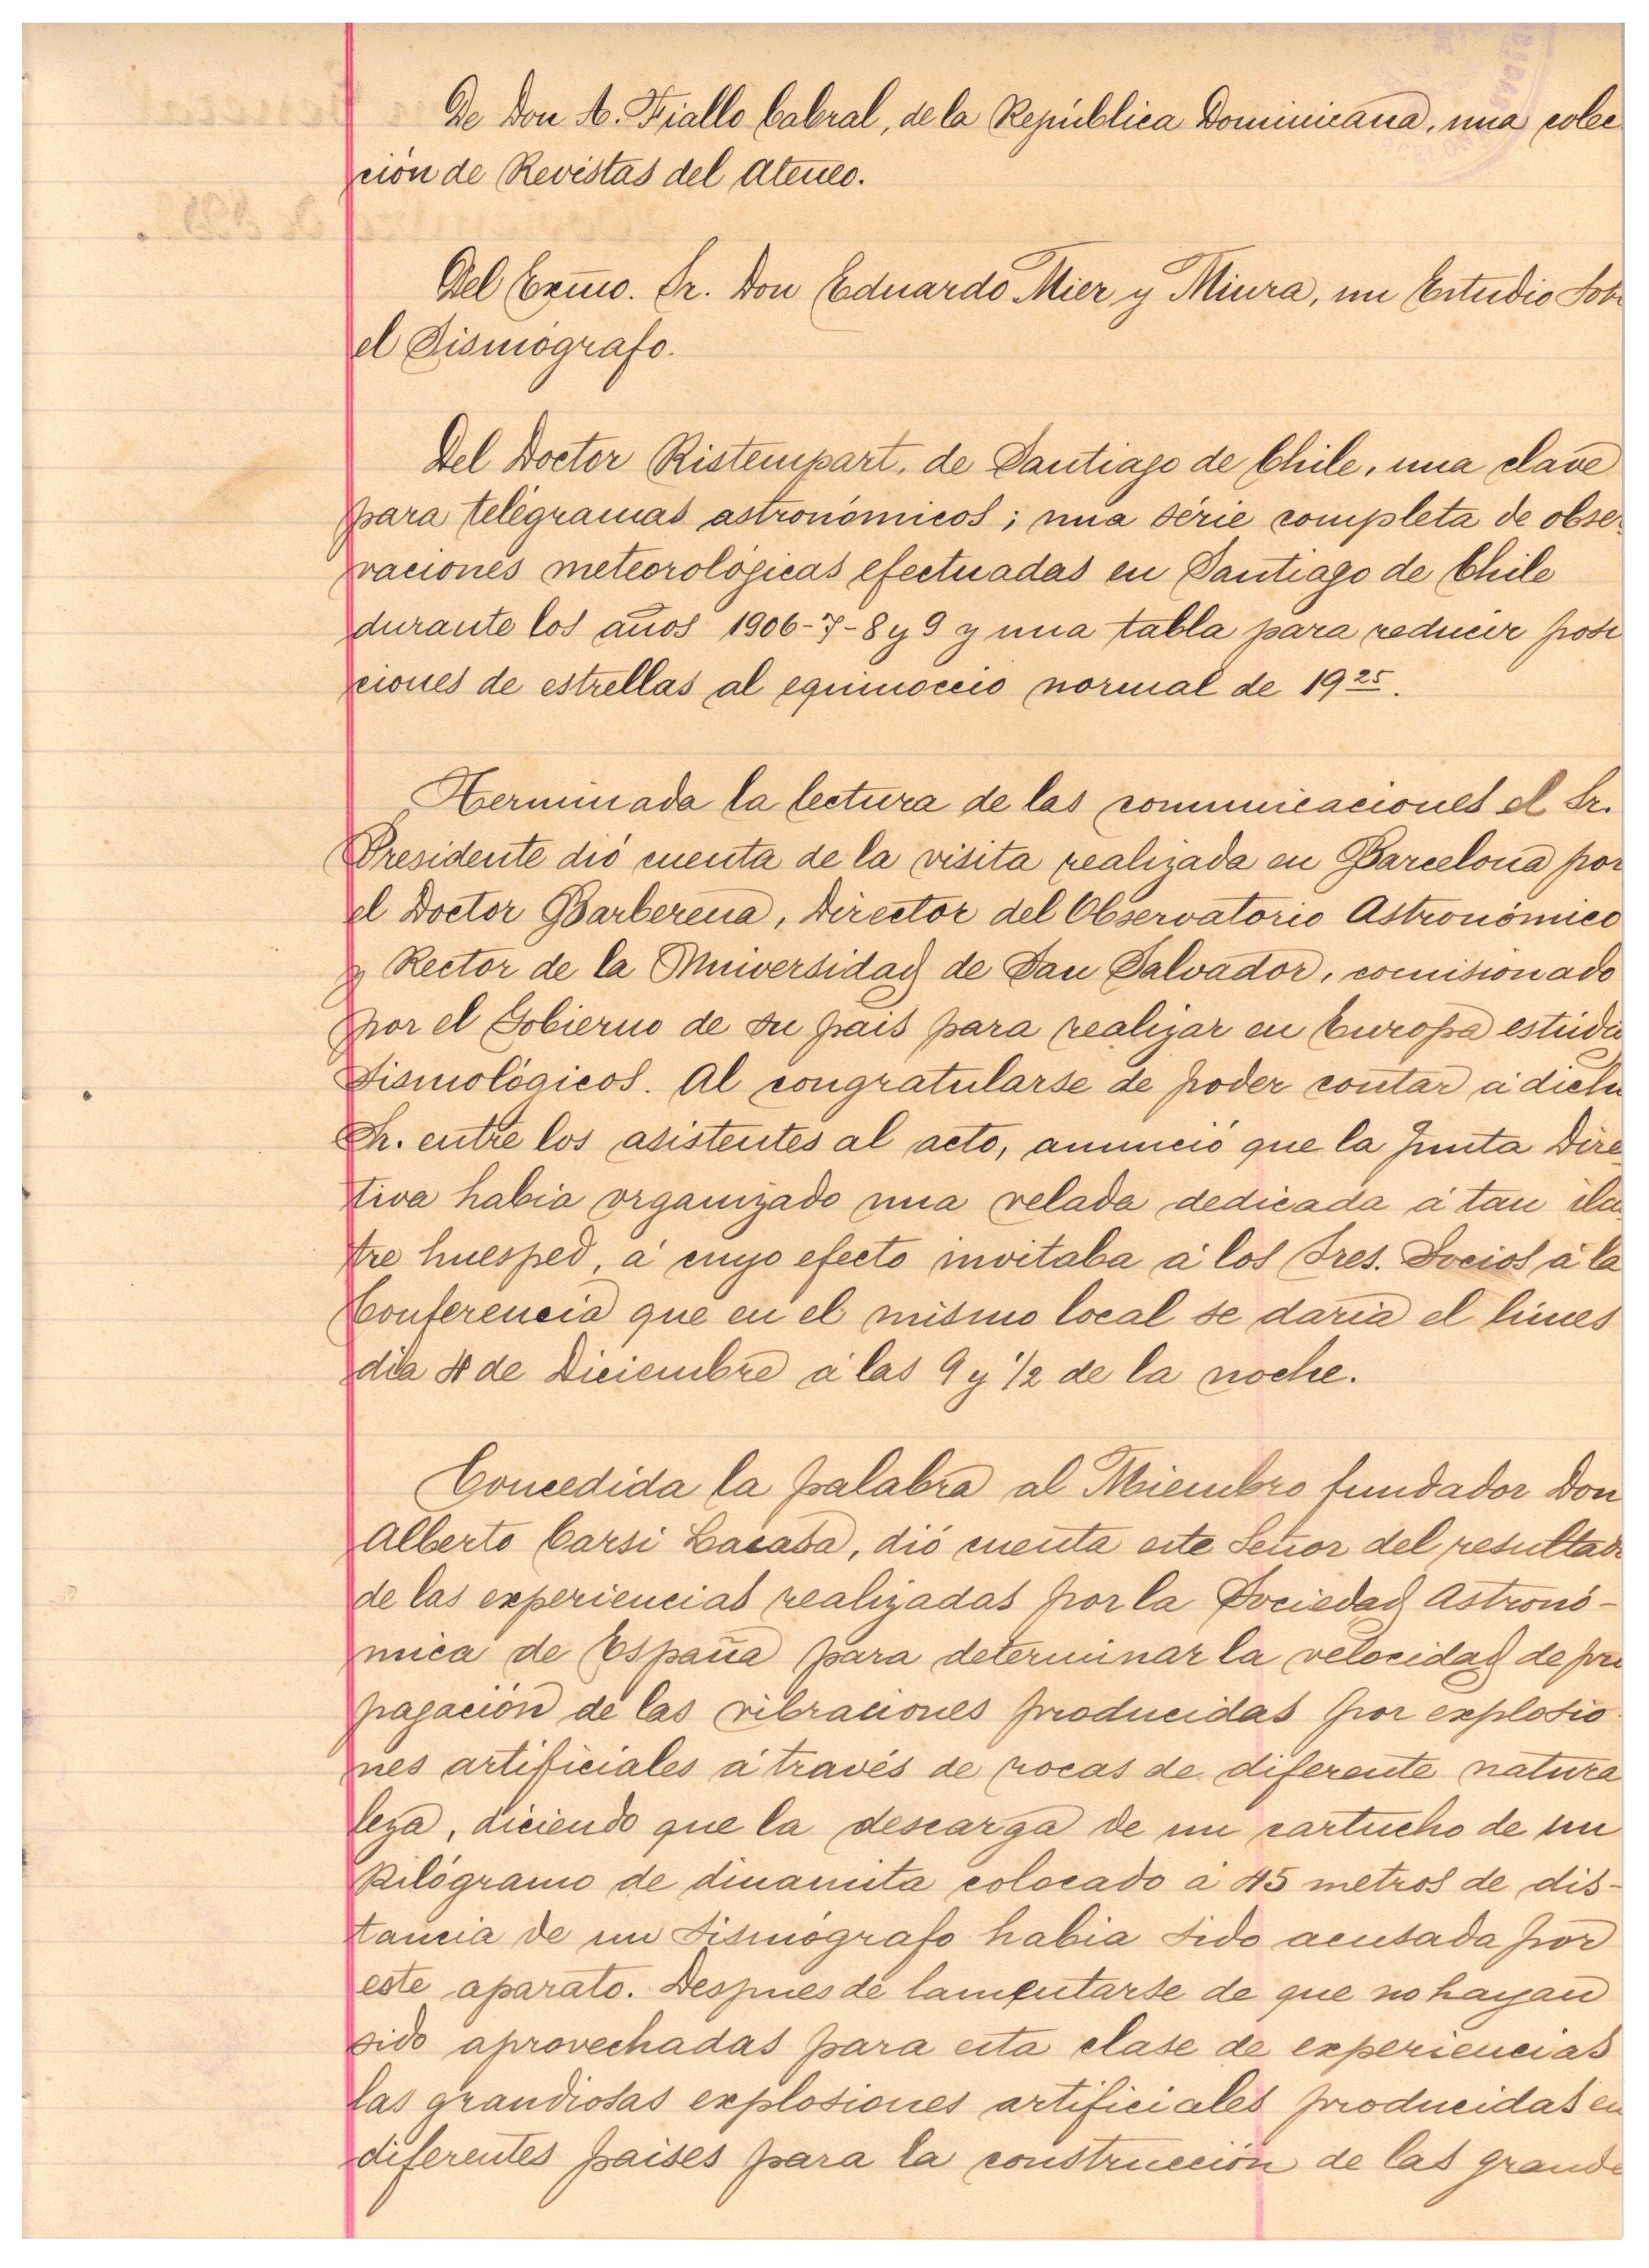 De Don A. Fiallo Cabral, de la República Dominicana, una colec
ción de Revistas del Ateneo.
Del Exmo. Sr. Don Eduardo Mier y Miura, un Estudio Sob
el Sismógrafo.
Del Doctor Ristempart, de Santiago de Chile, una clave
para telégramas astronómicos; una série completa de obser
vaciones meteorológicas efectuadas en Santiago de Chile
durante los años 1906-7-8 y 9 y una tabla para reducir posi
ciones de estrellas al equinoccio normal de 1925.
Terminada la lectura de las comunicaciones el Sr.
Presidente dió cuenta de la visita realizada en Barcelona por
el Doctor Barberena, Director del Observatorio Astronómico
y Rector de la Universidad de San Salvador, comisionado
por el Gobierno de su pais para realizar en Europa estudio
Sismológicos. Al congratularse de poder contar á dicho
Sr. entre los asistentes al acto, anunció que la Junta Direc
tiva habia organizado una velada dedicada á tan ilus
tre huesped, á cuyo efecto invitaba á los Sres. Socios á la
Conferencia que en el mismo local se daria el lúnes
dia 4 de Diciembre á las 9 y 1/2 de la noche.
Concedida la palabra al Miembro fundador Don
Alberto Carsi Lacasa, dió cuenta este Señor del resultado
de las experiencias realizadas por la Sociedad Astronó-
mica de España para determinar la velocidad de pro
pagación de las vibraciones producidas por explosio
nes artificiales á través de rocas de diferente natura
leza, diciendo que la descarga de un cartucho de un
Kilógramo de dinamita colocado á 45 metros de dis-
tancia de un Sismógrafo habia sido acusada por
este aparato. Despues de lamentarse de que no hayan
sido aprovechadas para esta clase de experiencias
las grandiosas explosiones artificiales producidas en
diferentes paises para la construcción de las grande